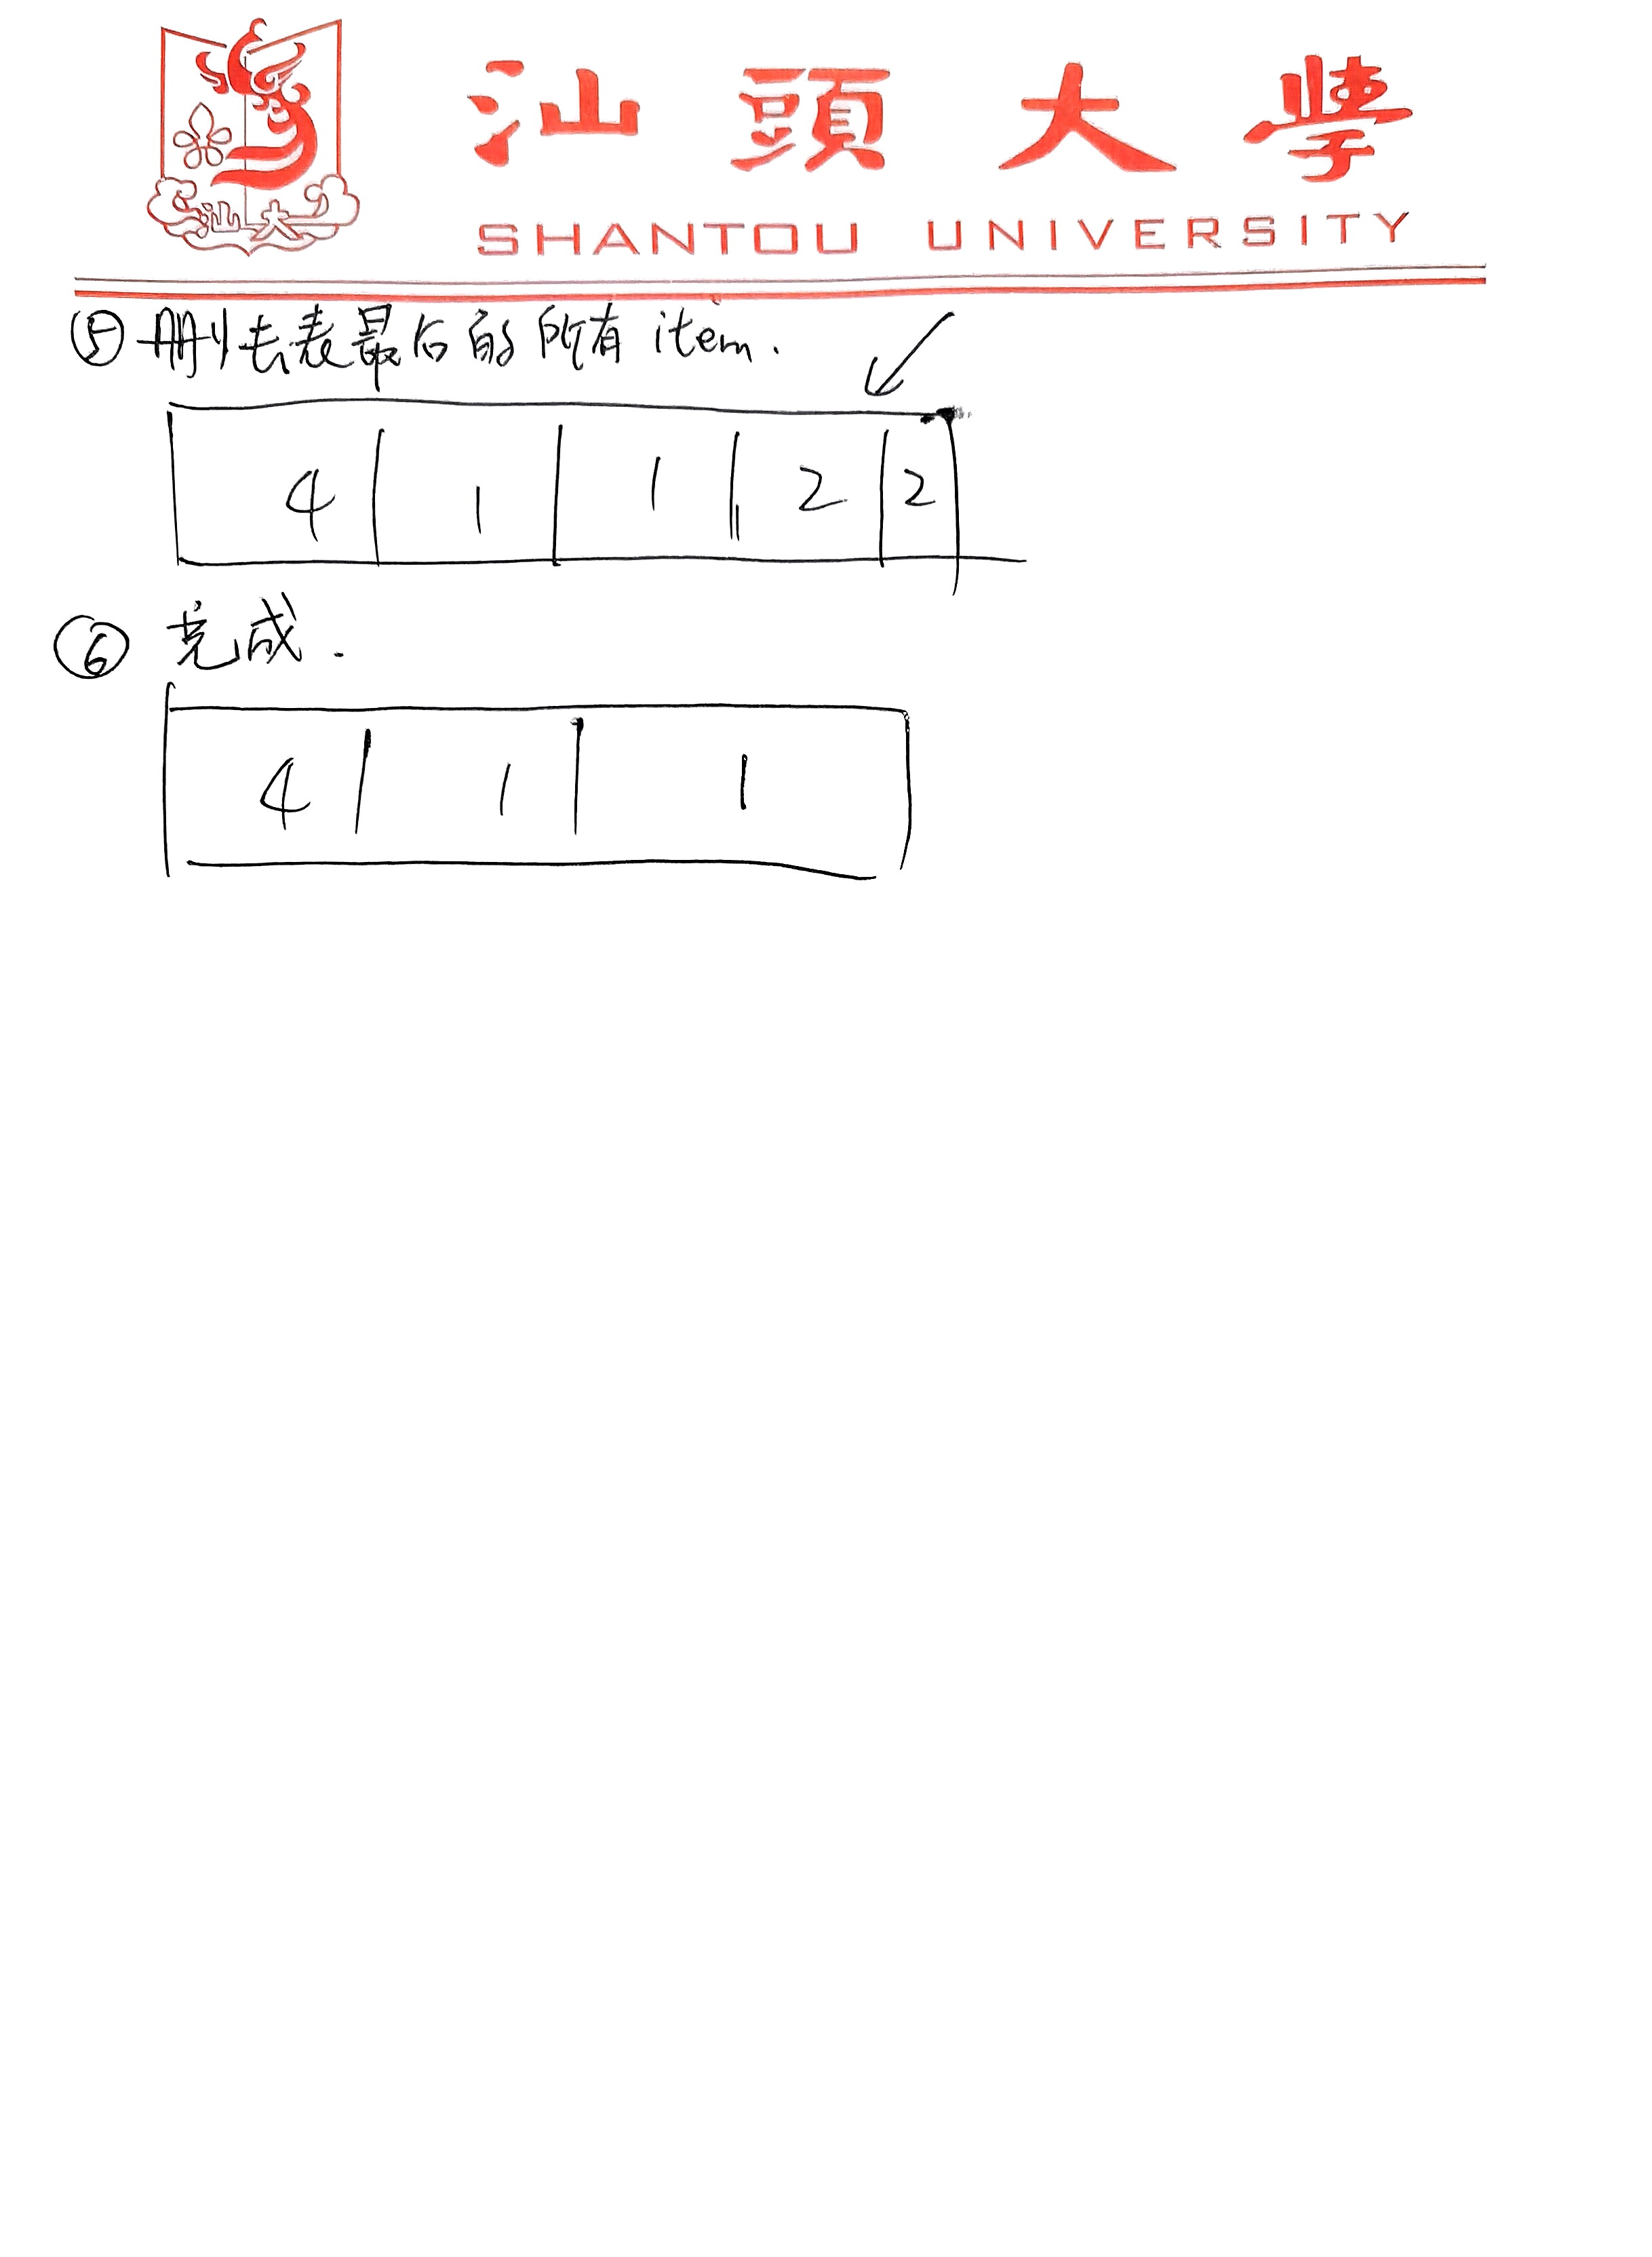 汕大
汕頭大學
SHANTOU UNIVERSITY
⑤ 删去表最后的所有 item.
4 1 1 2 2
⑥ 完成.
4 1 1